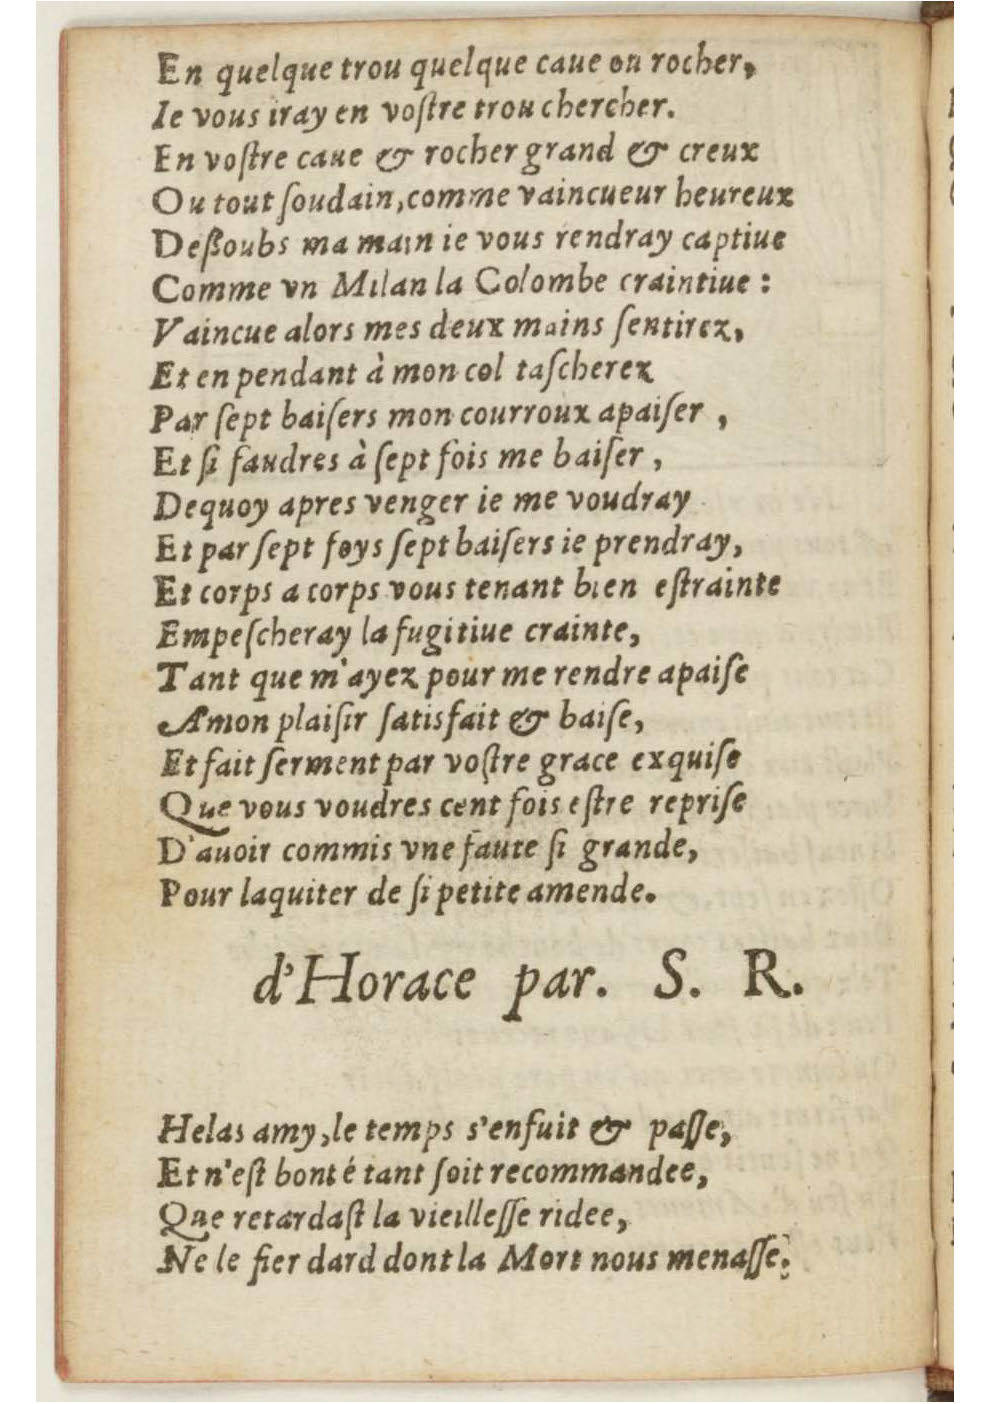 En quelque trou quelque caue ou rocher,
Ie vous iray en voſtre trou chercher.
En voſtre caue & rocher grand & creux
Ou tout ſoudain, comme vaincueur heureux
Deßoubs ma main ie vous rendray captiue
Comme vn Milan la Colombe craintiue :
Vaincue alors mes deux mains ſentirez,
Et en pendant à mon col taſcherez
Par ſept baiſers mon courroux apaiſer ,
Et ſi faudres à ſept fois me baiſer ,
Dequoy apres venger ie me voudray
Et par ſept foys ſept baiſers ie prendray,
Et corps a corps vous tenant bien eſtrainte
Empeſcheray la fugitiue crainte,
Tant que m'ayez pour me rendre apaiſe
A mon plaiſir ſatisfait & baiſe,
Et fait ſerment par voſtre grace exquiſe
Que vous voudres cent fois eſtre repriſe
D'auoir commis vne faute ſi grande,
Pour laquiter de ſi petite amende.
d'Horace par. S. R.
Helas amy, le temps s'enfuit & paſſe,
Et n'eſt bonté tant ſoit recommandee,
Que retardaſt la vieilleſſe ridee,
Ne le fier dard dont la Mort nous menaſſe.